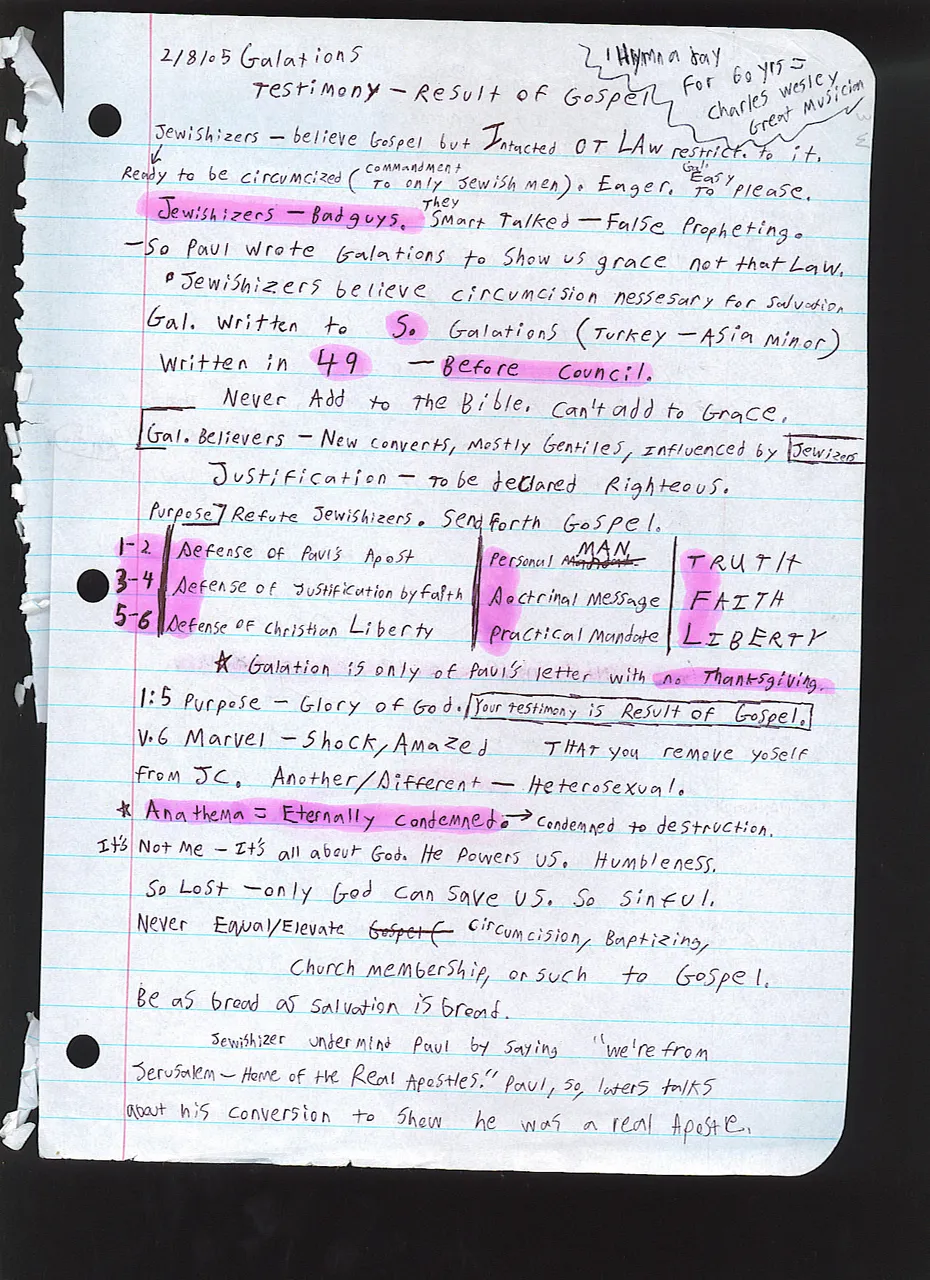 2/8/05 Galations
1 Hymn a day
For 60 yrs =
Charles Wesley
Great Musician
Testimony - Result of Gospel
Jewishizers - believe Gospel but Intacted OT LAW restrict. to it.
Ready to be circumcized (commandment to only Jewish men). Eager. Gal. Easy to please.
Jewishizers - Bad guys. They Smart Talked - False Propheting.
- So Paul wrote Galations to show us grace not that Law.
• Jewishizers believe circumcision nessesary for salvation
Gal. written to S. Galations (Turkey - Asia minor)
Written in 49 - Before Council.
Never Add to the Bible. Can't add to Grace.
Gal. Believers - New converts, mostly Gentiles, influenced by Jewizers
Justification - to be declared Righteous.
Purpose] Refute Jewishizers. Send forth Gospel.
1-2 Defense of Paul's Apost Personal MAN TRUTH
3-4 Defense of Justification by faith Doctrinal Message FAITH
5-6 Defense of Christian Liberty Practical Mandate LIBERTY
★ Galation is only of Paul's letter with no Thanksgiving.
1:5 Purpose - Glory of God. Your testimony is Result of Gospel.
V.6 Marvel - Shock, Amazed THAT you remove yoself
from JC. Another/Different - Heterosexual.
★ Anathema = Eternally condemned. → condemned to destruction.
It's Not me - It's all about God. He Powers us. Humbleness.
So Lost - only God can save us. So sinful.
Never Equal/Elevate Gospel ( circumcision, Baptizing,
Church membership, or such to Gospel.
Be as broad as salvation is broad.
Jewishizer undermind Paul by saying "we're from
Jerusalem - Home of the Real Apostles." Paul, so, laters talks
about his conversion to show he was a real Apostle.